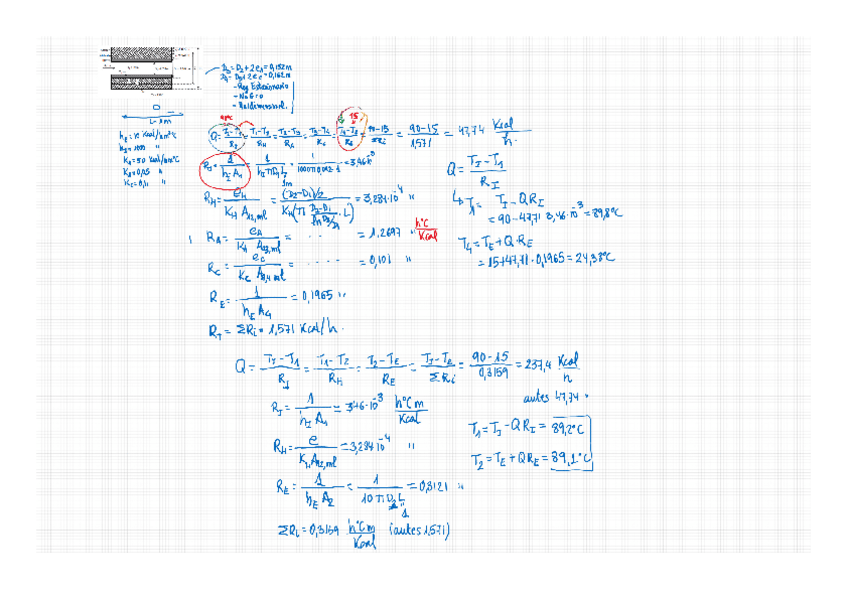 D₃ = D₂ + 2e₁ = 0,152m
D₄ = D₃ + 2e₂ = 0,162m
- Reg Estacionario
- No E=0
- Unidimensional.
L = 1m
hᵢ = 10 Kcal/hm²°C
h₂ = 1000 "
K₁ = 50 Kcal/hm°C
K₂ = 0,05 "
K_c = 0,11 "
90°C
15
Q = (T_I - T₁)/R_I = (T₁-T₂)/R_H = (T₂-T₃)/R_A = (T₃-T₄)/R_C = (T₄-T_E)/R_E = (90-15)/ΣRᵢ = (90-15)/1,571 = 47,74 Kcal/h.
R_I = 1/(h_I A₁) = 1/(h_I π D₁ L) = = 3,46·10⁻³
1m
R_H = e_H/(K_H A₁₂,ml) = ((D₂-D₁)/2)/(K_H (π (D₂-D₁)/(ln D₂/D₁) · L)) = 3,284·10⁻⁴ "
R_A = e_A/(K_A A₂₃,ml) = · · · = 1,2697 " h°C/Kcal
R_C = e_C/(K_C A₃₄,ml) = · · · · · = 0,101 "
R_E = 1/(h_E A₄) = 0,1965 "
R_T = ΣRᵢ = 1,571 Kcal/h.
Q = (T_I - T₁)/R_I
↳ T₁ = T_I - Q R_I
= 90 - 47,71 · 3,46·10⁻³ = 89,8°C
T₄ = T_E + Q R_E
= 15 + 47,71 · 0,1965 = 24,38°C
Q = (T_I - T₁)/R_I = (T₁-T₂)/R_H = (T₂-T_E)/R_E = (T_I-T_E)/ΣRᵢ = (90-15)/0,3159 = 237,4 Kcal/h
antes 47,74 "
R_I = 1/(h_I A₁) = 3,46·10⁻³ h°C m/Kcal
R_H = e/(K_H A₁₂,ml) = 3,284·10⁻⁴ "
R_E = 1/(h_E A₂) = 1/(10 π D₂ L) = 0,3121 "
1
ΣRᵢ = 0,3159 h°C m/Kcal (antes 1,571)
T₁ = T_I - Q R_I = 89,2°C
T₂ = T_E + Q R_E = 89,1°C